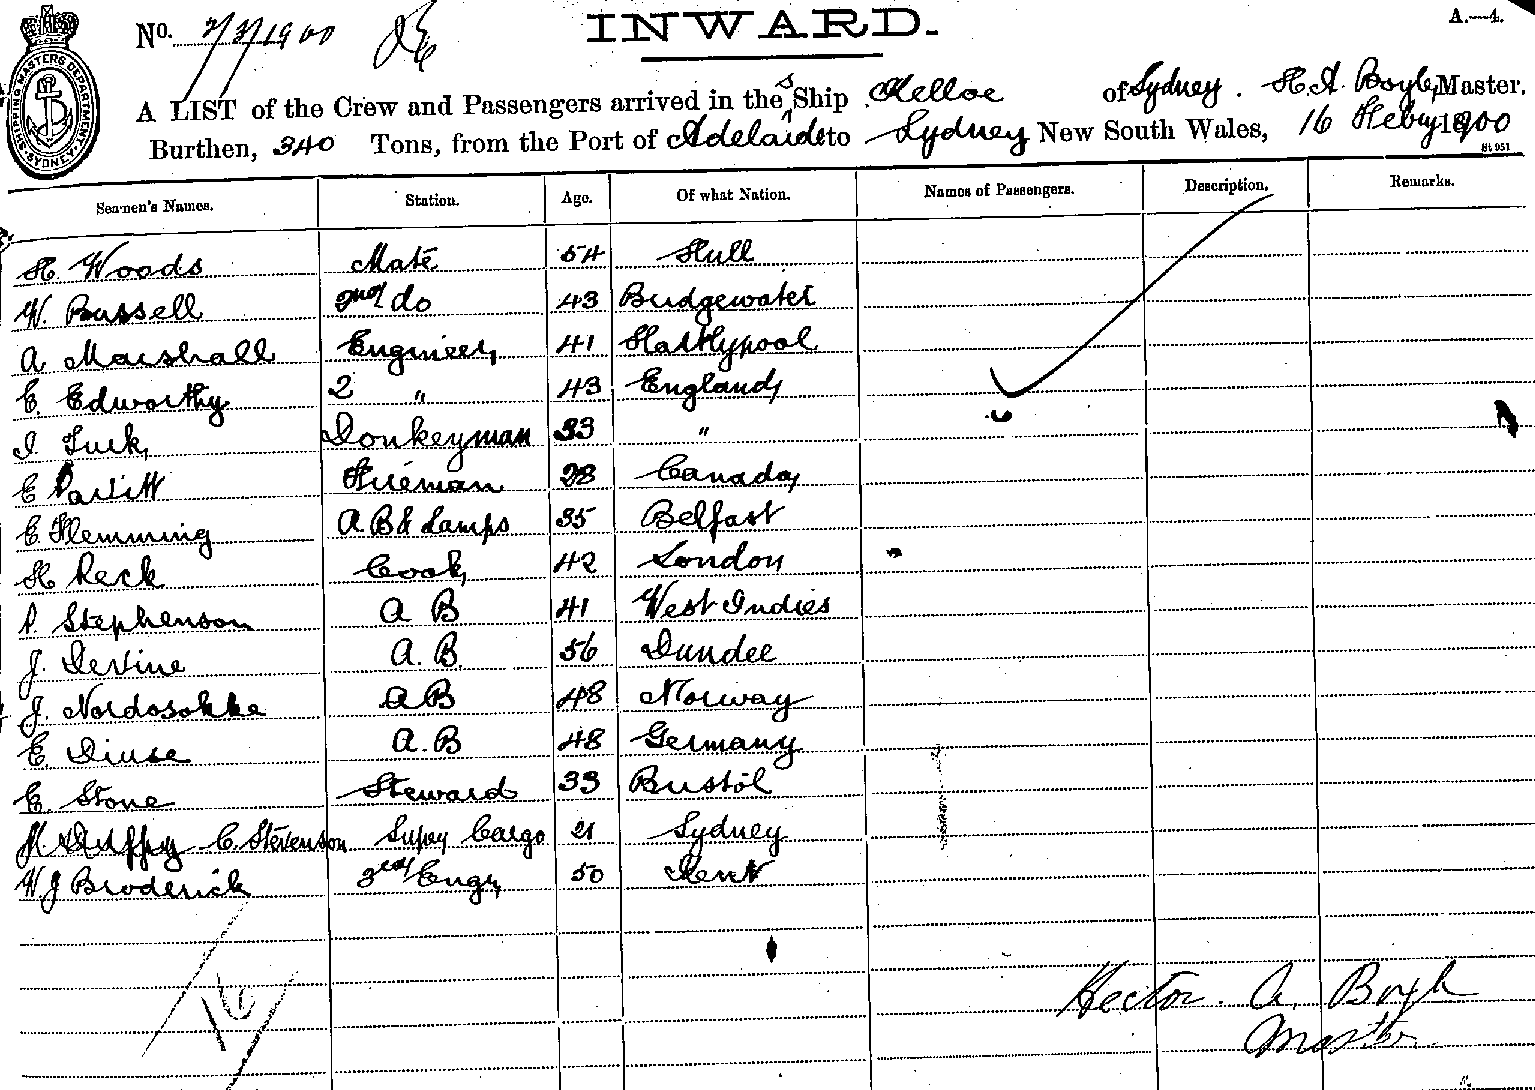 INWARD.
A.—4.
No. 2/3/1900
SHIPPING MASTERS DEPARTMENT SYDNEY
A LIST of the Crew and Passengers arrived in the S Ship Kelloe of Sydney. H. A. Boyle, Master,
Burthen, 340 Tons, from the Port of Adelaide to Sydney New South Wales, 16 Feby 1900
St 951
Seamen's Names. Station. Age. Of what Nation. Names of Passengers. Description. Remarks.
H. Woods Mate 54 Hull
W. Bussell 2nd do 43 Bridgewater
A Marshall Engineer 41 Hartlypool
E. Edworthy 2 " 43 England
I. Tuck Donkeyman 33 "
E Parlitt Fireman 28 Canada
C. Flemming A.B & Lamps 35 Belfast
H Reck Cook 42 London
P. Stephenson A B 41 West Indies
J. Devine A. B. 56 Dundee
J. Nordosokke A B 48 Norway
E. Diuse A. B 48 Germany
E. Stone Steward 33 Bristol
H Duffy C. Stevenson Super Cargo 21 Sydney
W. J Broderick 3rd Engr 50 Kent
16
Hector. A. Boyle
Master